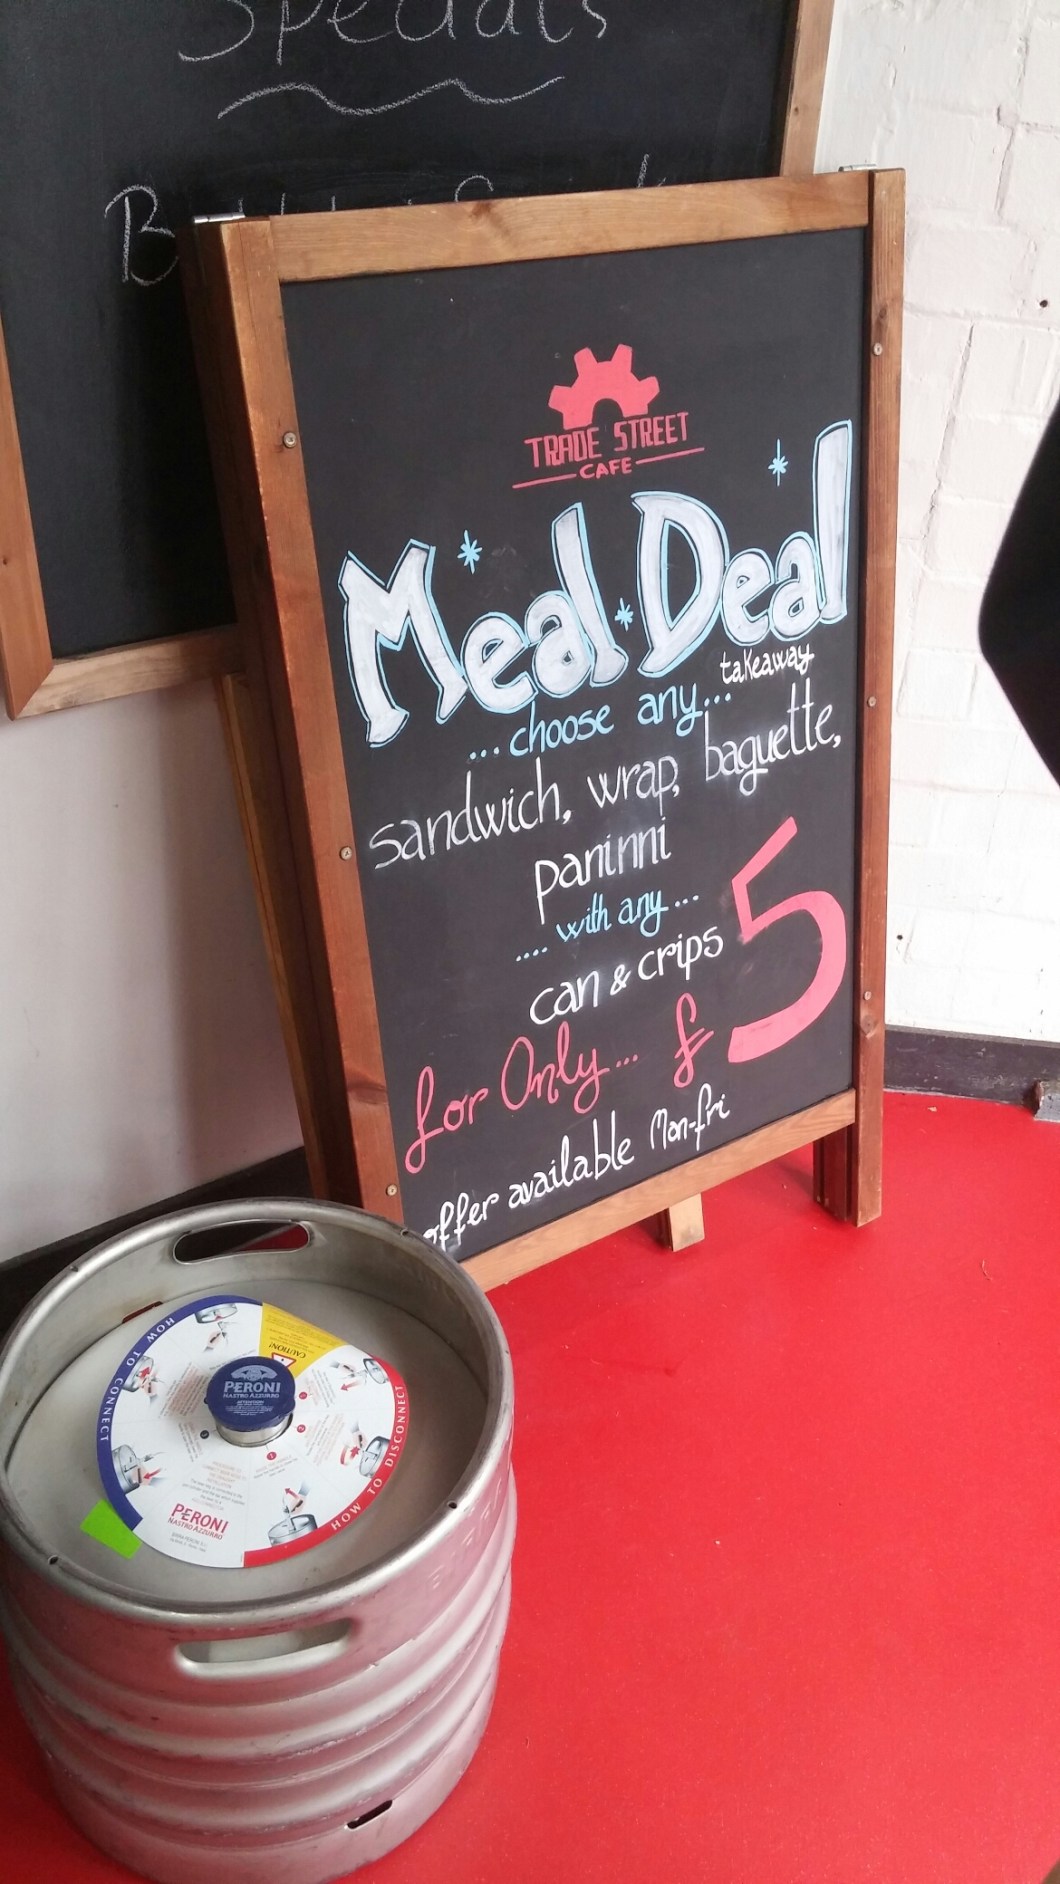 Specials
TRADE STREET
CAFE
Meal Deal
takeaway
...choose any...
sandwich, wrap, baguette,
paninni
.... with any ...
can & crips
for Only... £5
offer available Mon-fri
HOW TO CONNECT
CAUTION!
PERONI
NASTRO AZZURRO
HOW TO DISCONNECT
PERONI
NASTRO AZZURRO